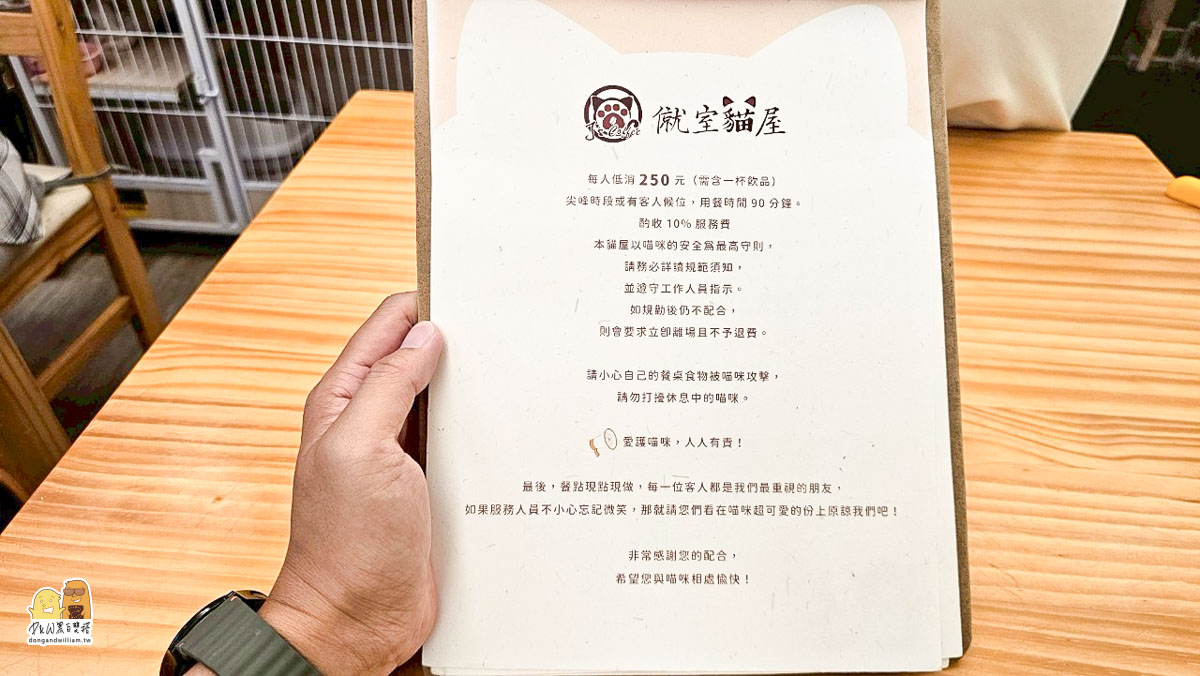 J's Coffee
僦室貓屋
每人低消 250 元（需含一杯飲品）
尖峰時段或有客人候位，用餐時間 90 分鐘。
酌收 10% 服務費
本貓屋以喵咪的安全為最高守則，
請務必詳讀規範須知，
並遵守工作人員指示。
如規勸後仍不配合，
則會要求立即離場且不予退費。
請小心自己的餐桌食物被喵咪攻擊，
請勿打擾休息中的喵咪。
愛護喵咪，人人有責！
最後，餐點現點現做，每一位客人都是我們最重視的朋友，
如果服務人員不小心忘記微笑，那就請您們看在喵咪超可愛的份上原諒我們吧！
非常感謝您的配合，
希望您與喵咪相處愉快！
D&W黑白雙搭
dongandwilliam.tw